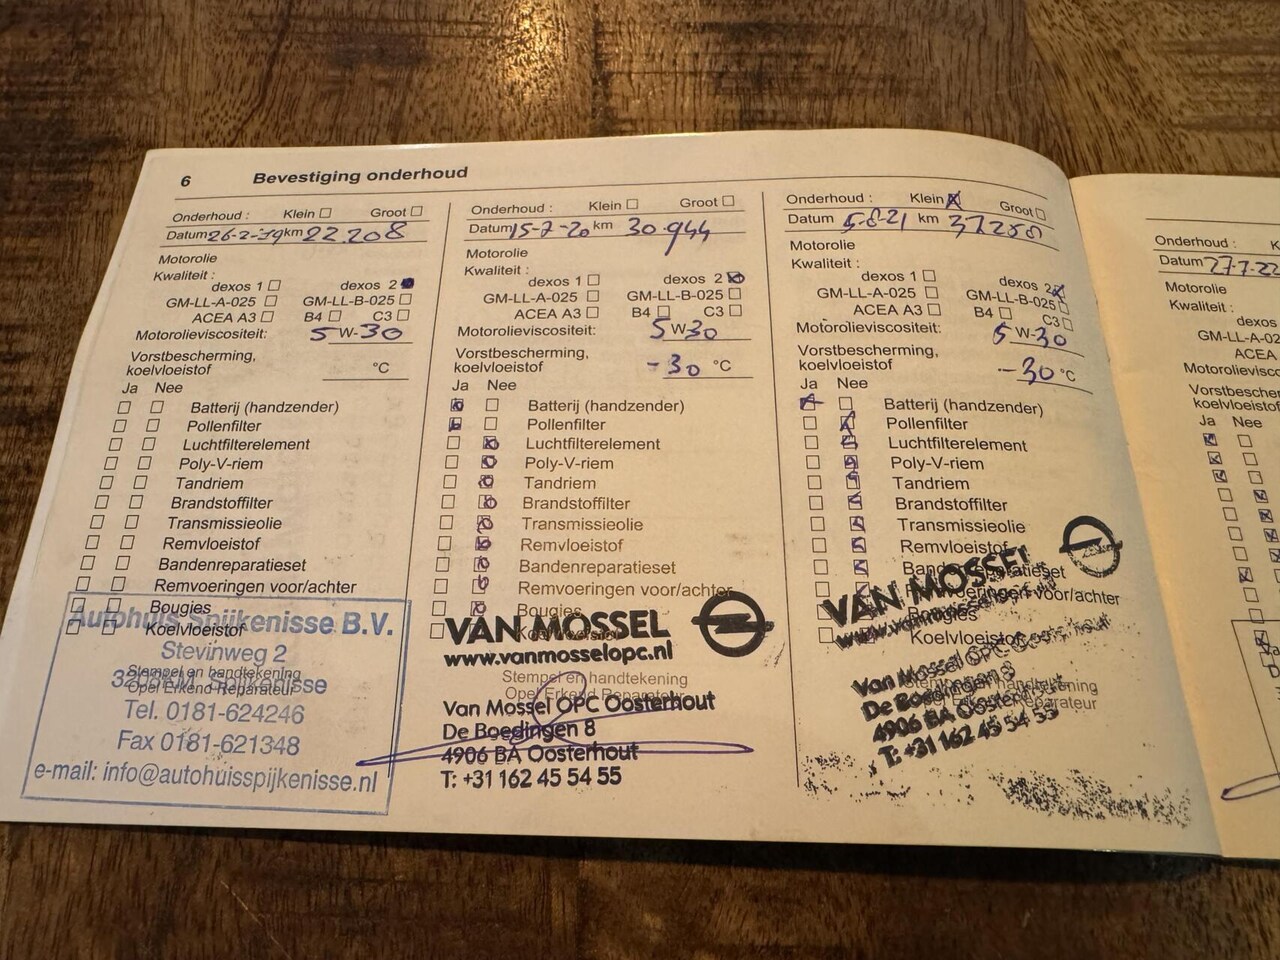 6 Bevestiging onderhoud
Onderhoud : Klein Groot
Datum 26-2-19 km 22.208
Motorolie
Kwaliteit :
dexos 1 dexos 2
GM-LL-A-025 GM-LL-B-025
ACEA A3 B4 C3
Motorolieviscositeit: 5 W-30
Vorstbescherming,
koelvloeistof °C
Ja Nee
Batterij (handzender)
Pollenfilter
Luchtfilterelement
Poly-V-riem
Tandriem
Brandstoffilter
Transmissieolie
Remvloeistof
Bandenreparatieset
Remvoeringen voor/achter
Bougies
Koelvloeistof
Stempel en handtekening
Opel Erkend Reparateur
Autohuis Spijkenisse B.V.
Stevinweg 2
Spijkenisse
Tel. 0181-624246
Fax 0181-621348
e-mail: info@autohuisspijkenisse.nl
Onderhoud : Klein Groot
Datum 15-7-20 km 30.944
Motorolie
Kwaliteit :
dexos 1 dexos 2
GM-LL-A-025 GM-LL-B-025
ACEA A3 B4 C3
Motorolieviscositeit: 5 W30
Vorstbescherming,
koelvloeistof -30 °C
Ja Nee
Batterij (handzender)
Pollenfilter
Luchtfilterelement
Poly-V-riem
Tandriem
Brandstoffilter
Transmissieolie
Remvloeistof
Bandenreparatieset
Remvoeringen voor/achter
Bougies
Koelvloeistof
Stempel en handtekening
Opel Erkend Reparateur
VAN MOSSEL
www.vanmosselopc.nl
Van Mossel OPC Oosterhout
De Boedingen 8
4906 BA Oosterhout
T: +31 162 45 54 55
Onderhoud : Klein Groot
Datum 5-8-21 km 37250
Motorolie
Kwaliteit :
dexos 1 dexos 2
GM-LL-A-025 GM-LL-B-025
ACEA A3 B4 C3
Motorolieviscositeit: 5 W-30
Vorstbescherming,
koelvloeistof -30 °C
Ja Nee
Batterij (handzender)
Pollenfilter
Luchtfilterelement
Poly-V-riem
Tandriem
Brandstoffilter
Transmissieolie
Remvloeistof
Bandenreparatieset
Remvoeringen voor/achter
Bougies
Koelvloeistof
Stempel en handtekening
Opel Erkend Reparateur
VAN MOSSEL
Van Mossel OPC Oosterhout
De Boedingen 8
4906 BA Oosterhout
T: +31 162 45 54 55
Onderhoud : K
Datum 27-7-22
Motorolie
Kwaliteit :
dexos
GM-LL-A-02
ACEA
Motorolievisco
Vorstbescher
koelvloeistof
Ja Nee